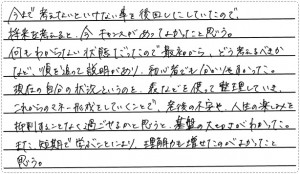 今まで考えないといけない事を後回しにしていたので、
将来を考えると、今チャンスがあってよかったと思う。
何もわからない状態だったので最初から、どう考えるべきか
など、順を追って説明があり、初心者でも分かりやすかった。
現在の自分の状況というのを、表などを使って整理していき、
これからのマネー形成としていくことで、老後の不安や、人生の楽しみを
抑制することなく過ごせるかと思うと、基盤の大切さがわかった。
また、短期で学ぶことにより、理解力も増せたのでよかったと
思う。